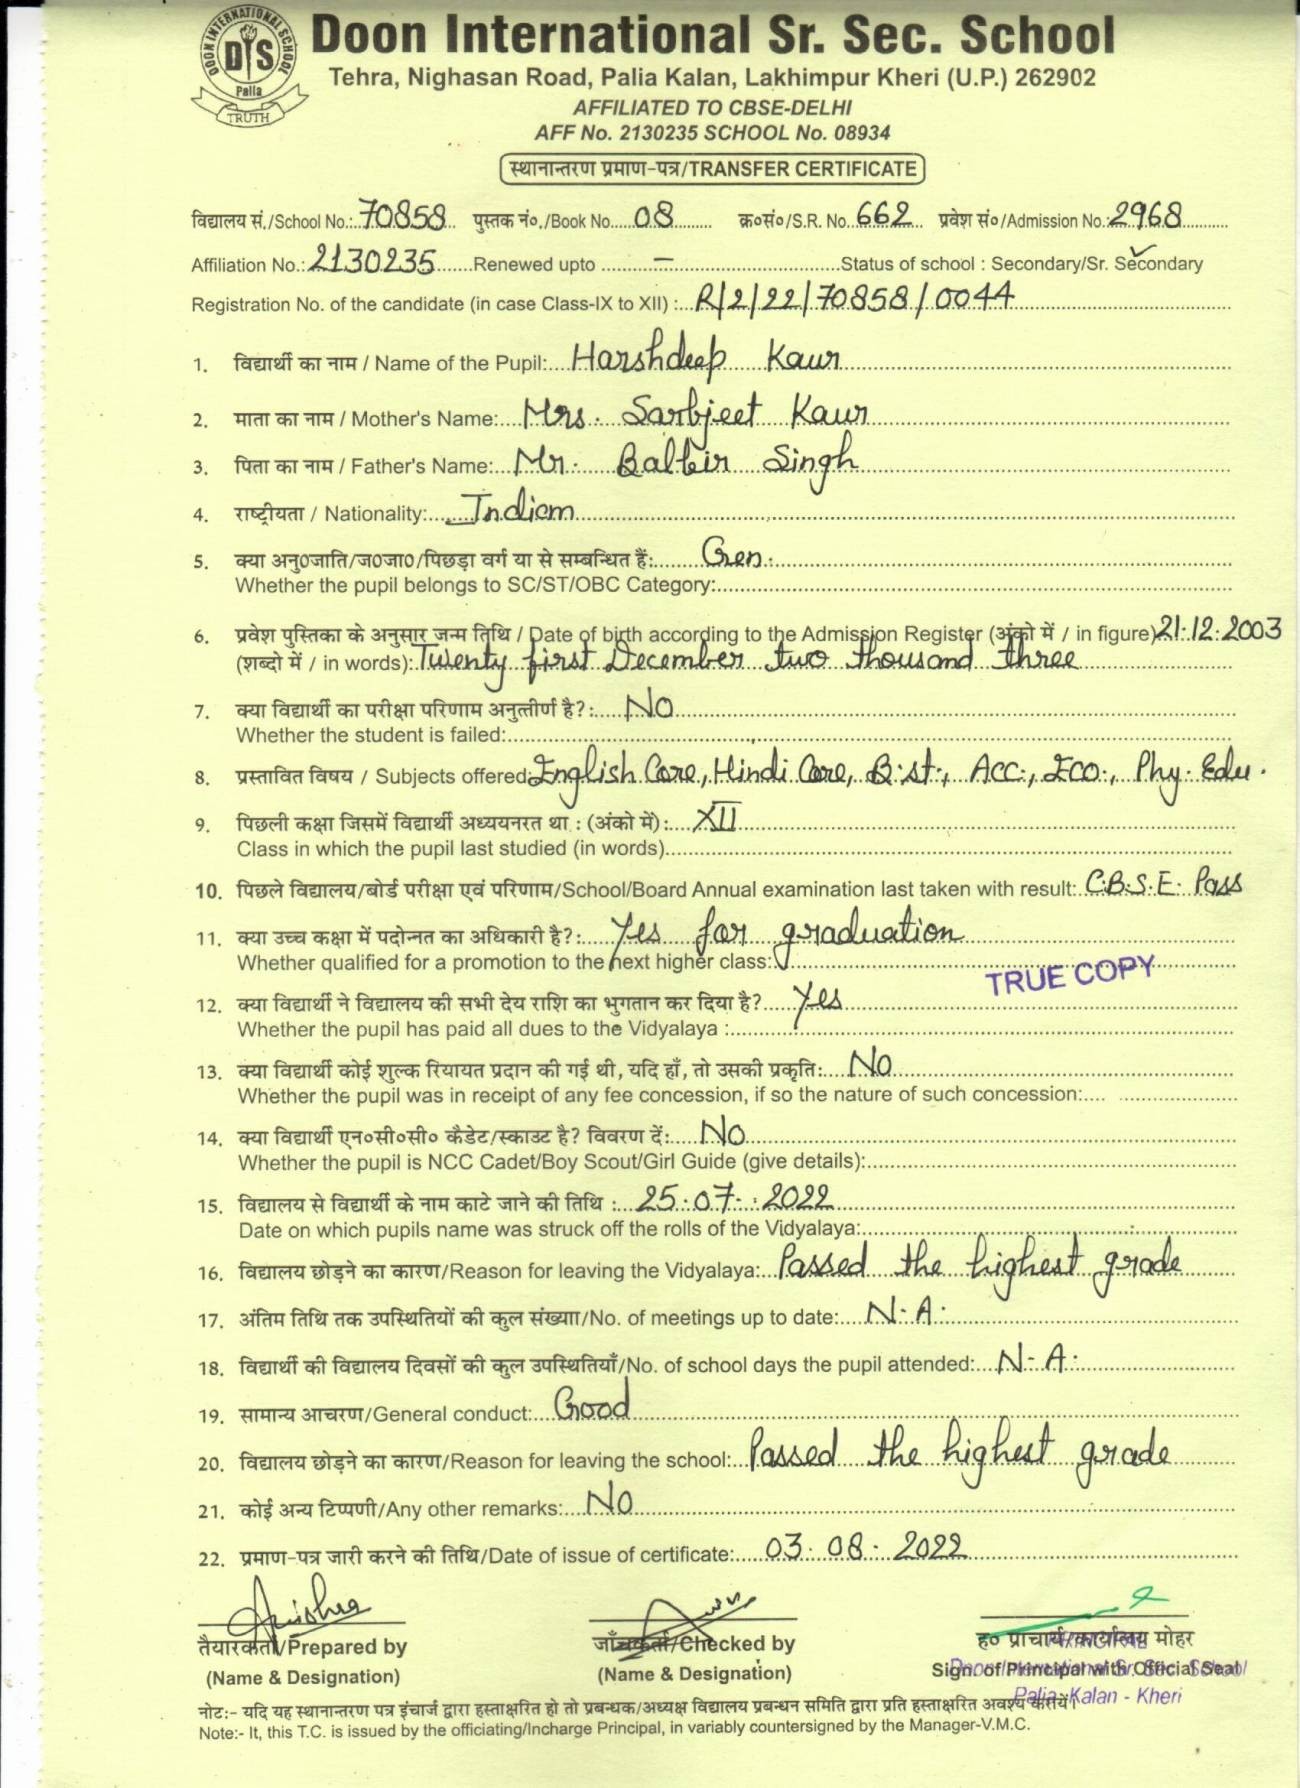 DOON INTERNATIONAL SCHOOL
DIS
Palia
TRUTH
Doon International Sr. Sec. School
Tehra, Nighasan Road, Palia Kalan, Lakhimpur Kheri (U.P.) 262902
AFFILIATED TO CBSE-DELHI
AFF No. 2130235 SCHOOL No. 08934
स्थानान्तरण प्रमाण-पत्र/TRANSFER CERTIFICATE
विद्यालय सं./School No.: 70858 पुस्तक नं०./Book No. 08 क्र०सं०/S.R. No. 662 प्रवेश सं०/Admission No.: 2968
Affiliation No.: 2130235 Renewed upto – Status of school : Secondary/Sr. Secondary
Registration No. of the candidate (in case Class-IX to XII) : R/2/22/70858/0044
1. विद्यार्थी का नाम / Name of the Pupil: Harshdeep Kaur
2. माता का नाम / Mother's Name: Mrs. Sarbjeet Kaur
3. पिता का नाम / Father's Name: Mr. Balbir Singh
4. राष्ट्रीयता / Nationality: Indian
5. क्या अनु0जाति/ज0जा0/पिछड़ा वर्ग या से सम्बन्धित हैं: Gen.
Whether the pupil belongs to SC/ST/OBC Category:
6. प्रवेश पुस्तिका के अनुसार जन्म तिथि / Date of birth according to the Admission Register (अंको में / in figure) 21.12.2003
(शब्दो में / in words): Twenty first December two thousand three
7. क्या विद्यार्थी का परीक्षा परिणाम अनुत्तीर्ण है?: No
Whether the student is failed:
8. प्रस्तावित विषय / Subjects offered: English Core, Hindi Core, B.st., Acc., Eco., Phy. Edu.
9. पिछली कक्षा जिसमें विद्यार्थी अध्ययनरत था : (अंको में): XII
Class in which the pupil last studied (in words)
10. पिछले विद्यालय/बोर्ड परीक्षा एवं परिणाम/School/Board Annual examination last taken with result: C.B.S.E. Pass
11. क्या उच्च कक्षा में पदोन्नत का अधिकारी है?: Yes for graduation
Whether qualified for a promotion to the next higher class:
TRUE COPY
12. क्या विद्यार्थी ने विद्यालय की सभी देय राशि का भुगतान कर दिया है? Yes
Whether the pupil has paid all dues to the Vidyalaya :
13. क्या विद्यार्थी कोई शुल्क रियायत प्रदान की गई थी, यदि हाँ, तो उसकी प्रकृति: No
Whether the pupil was in receipt of any fee concession, if so the nature of such concession:
14. क्या विद्यार्थी एन०सी०सी० कैडेट/स्काउट है? विवरण दें: No
Whether the pupil is NCC Cadet/Boy Scout/Girl Guide (give details):
15. विद्यालय से विद्यार्थी के नाम काटे जाने की तिथि : 25.07.2022
Date on which pupils name was struck off the rolls of the Vidyalaya:
16. विद्यालय छोड़ने का कारण/Reason for leaving the Vidyalaya: Passed the highest grade
17. अंतिम तिथि तक उपस्थितियों की कुल संख्या/No. of meetings up to date: N.A.
18. विद्यार्थी की विद्यालय दिवसों की कुल उपस्थितियाँ/No. of school days the pupil attended: N.A.
19. सामान्य आचरण/General conduct: Good
20. विद्यालय छोड़ने का कारण/Reason for leaving the school: Passed the highest grade
21. कोई अन्य टिप्पणी/Any other remarks: No
22. प्रमाण-पत्र जारी करने की तिथि/Date of issue of certificate: 03.08.2022
तैयारकर्ता/Prepared by जाँचकर्ता/Checked by ह० प्राचार्य/कार्यालय मोहर
(Name & Designation) (Name & Designation) Sign. of Principal with Official Seal
Doon International Sr. Sec. School
Palia Kalan - Kheri
नोट:- यदि यह स्थानान्तरण पत्र इंचार्ज द्वारा हस्ताक्षरित हो तो प्रबन्धक/अध्यक्ष विद्यालय प्रबन्धन समिति द्वारा प्रति हस्ताक्षरित अवश्य करायें।
Note:- It, this T.C. is issued by the officiating/Incharge Principal, in variably countersigned by the Manager-V.M.C.